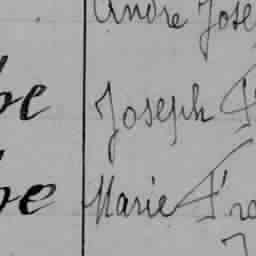 André Jose
be Joseph F
be Marie Fra